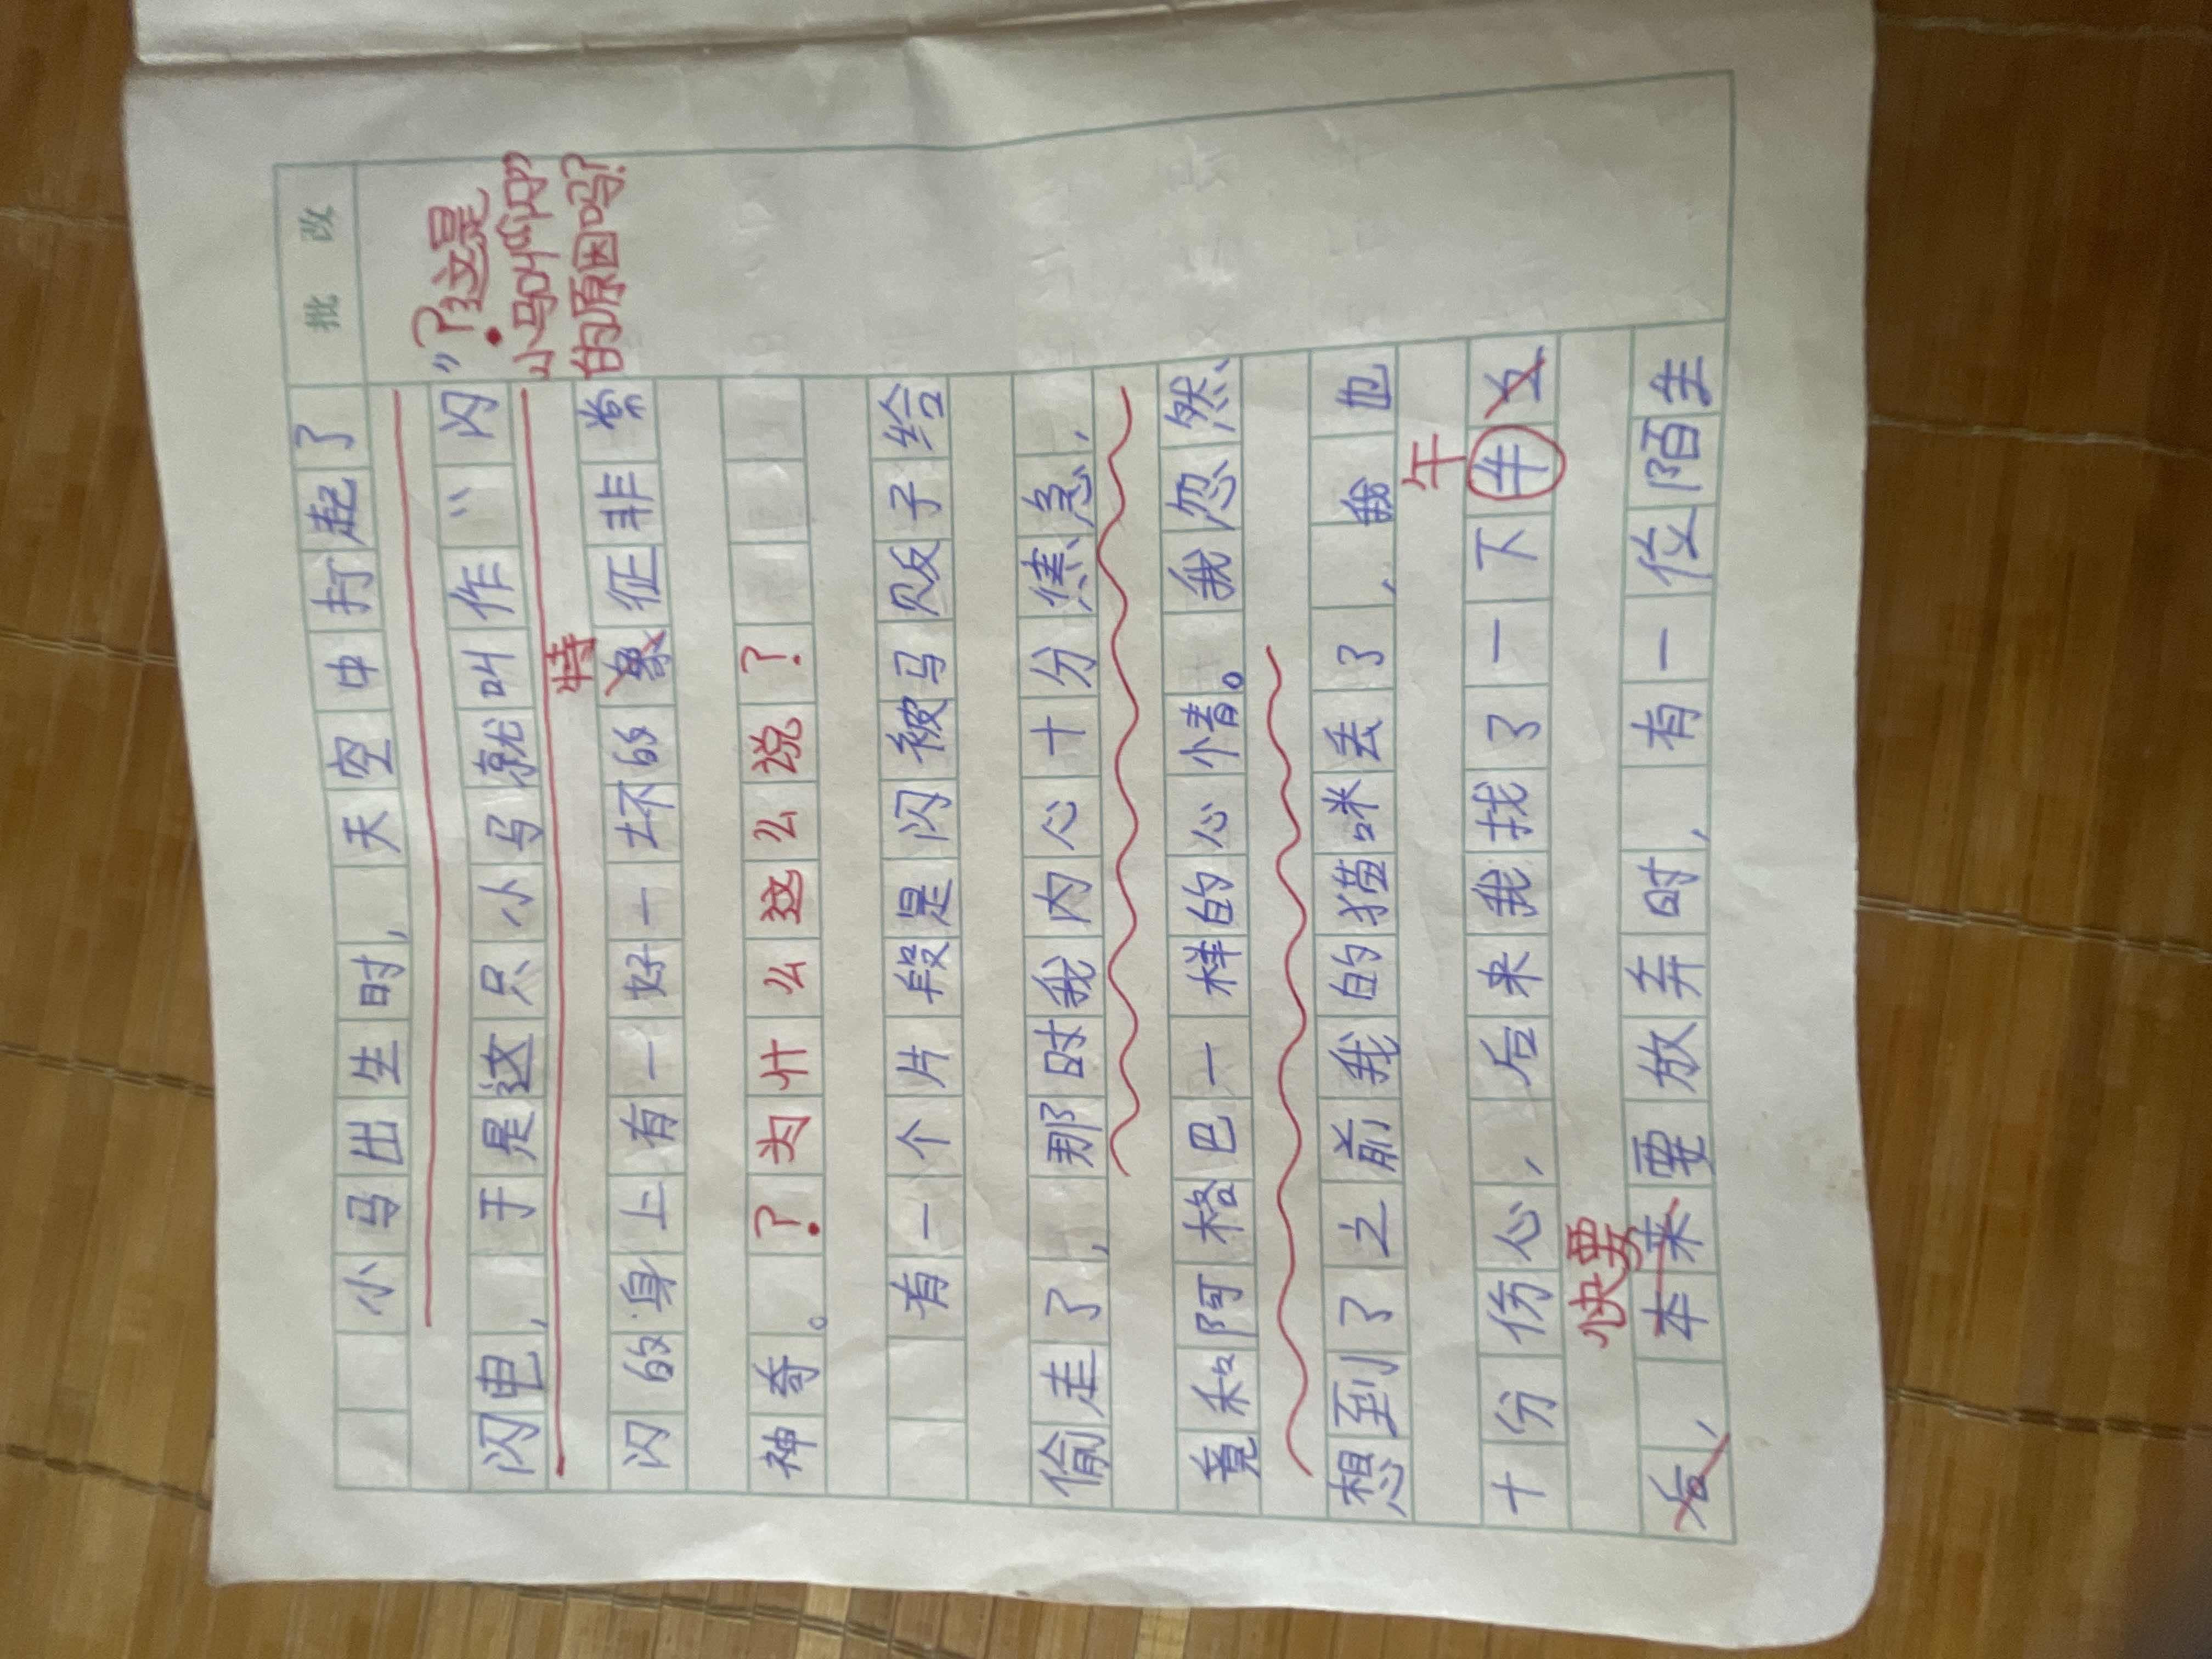 批 改
小马出生时，天空中打起了
闪电，于是这只小马就叫作“闪”
？这是
小马叫“闪”
的原因吗？
特
闪的身上有一好一坏的象征非常
神奇。？为什么这么说？
有一个片段是闪被马贩子给
偷走了，那时我内心十分焦急，
竟和阿格巴一样的心情。我忽然
想到了之前我的猫咪丢了，我也
午
十分伤心，后来我找了一下牛五
快要
后，本来要放弃时，有一位陌生